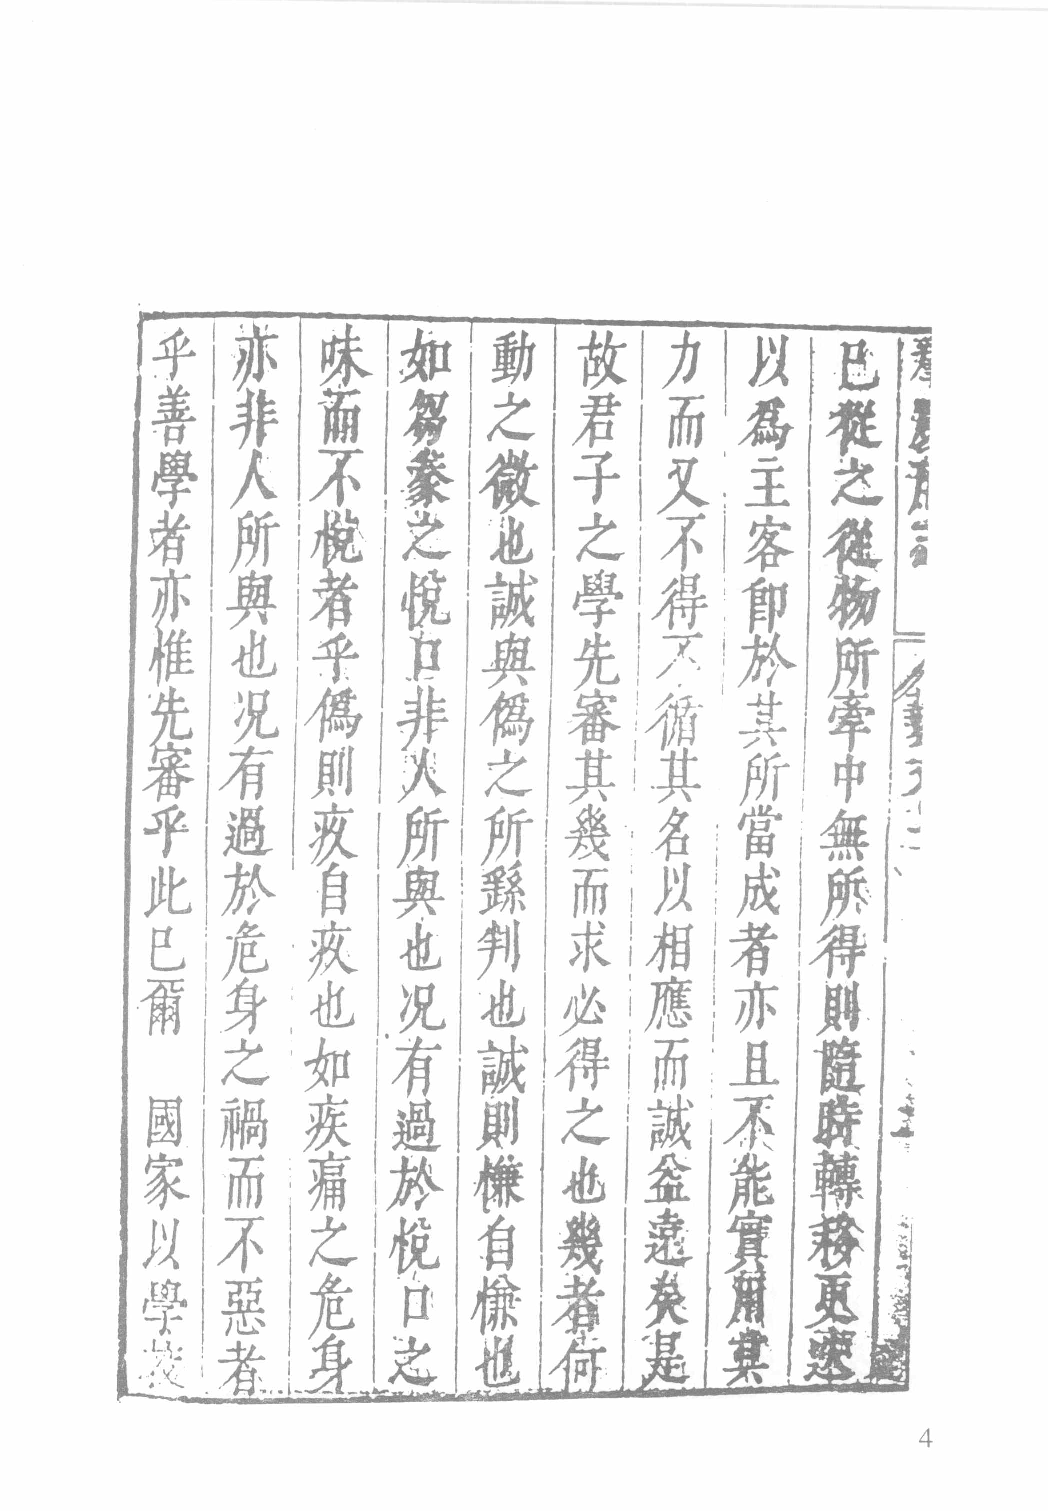 已從之從物所牽中無所得則隨時轉移更迭
以爲主客卽於其所當成者亦且不能實用其
力而又不得不循其名以相應而誠益遠矣是
故君子之學先審其幾而求必得之也幾者何
動之微也誠與僞之所繇判也誠則慊自慊也
如芻豢之悅口非人所與也况有過於悅口之
味而不悅者乎僞則疚自疚也如疾痛之危身
亦非人所與也况有過於危身之禍而不惡者
乎善學者亦惟先審乎此已爾 國家以學校
4